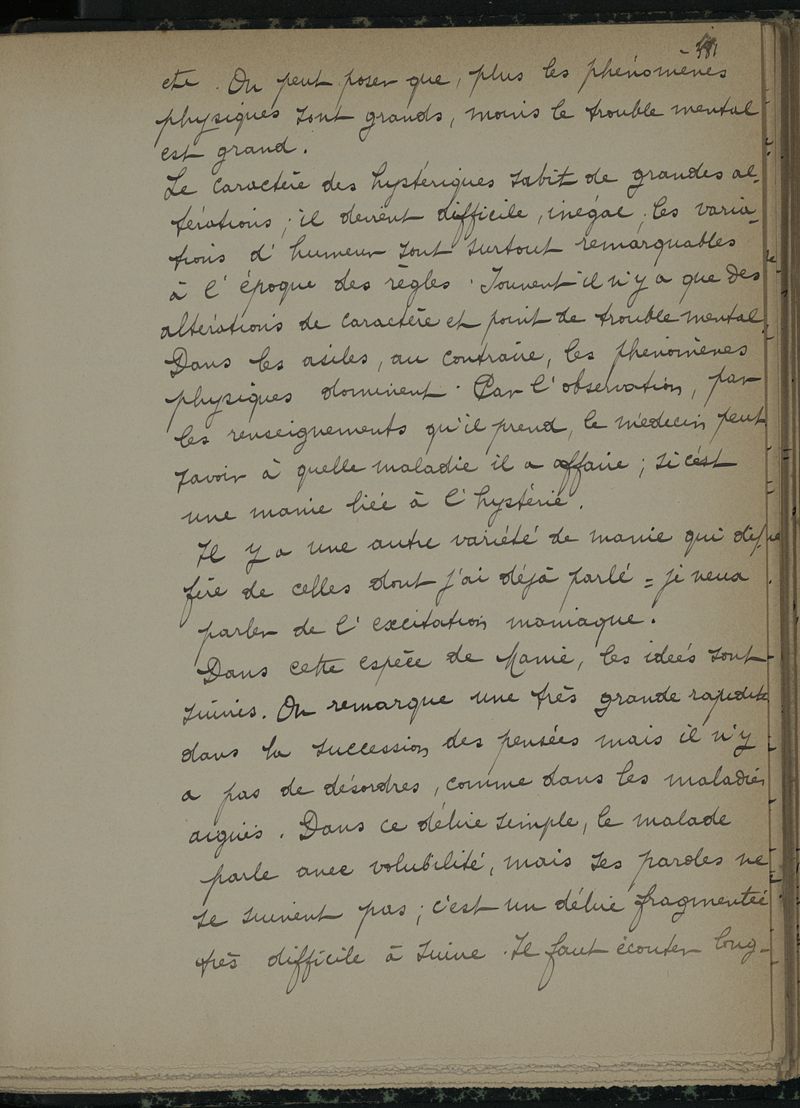 etc. On peut poser que, plus les phénomènes
physiques sont grands, moins le trouble mental
est grand.
Le caractère des hystériques subit de grandes al-
térations; il devient difficile, inégal; les varia-
tions d'humeur sont surtout remarquables
à l'époque des règles. Souvent il n'y a que des
altérations de caractère et point de trouble mental.
Dans les asiles, au contraire, les phénomènes
physiques dominent. Par l'observation, par
les renseignements qu'il prend, le médecin peut
savoir à quelle maladie il a affaire; si c'est
une manie liée à l'hystérie.
Il y a une autre variété de manie qui dif-
fère de celles dont j'ai déjà parlé = je veux
parler de l'excitation maniaque.
Dans cette espèce de Manie, les idées sont
suivies. On remarque une très grande rapidité
dans la succession des pensées mais il n'y
a pas de désordres, comme dans les maladies
aiguës. Dans ce délire simple, le malade
parle avec volubilité, mais ses paroles ne
se suivent pas; c'est un délire fragmenté
très difficile à suivre. Il faut écouter long-